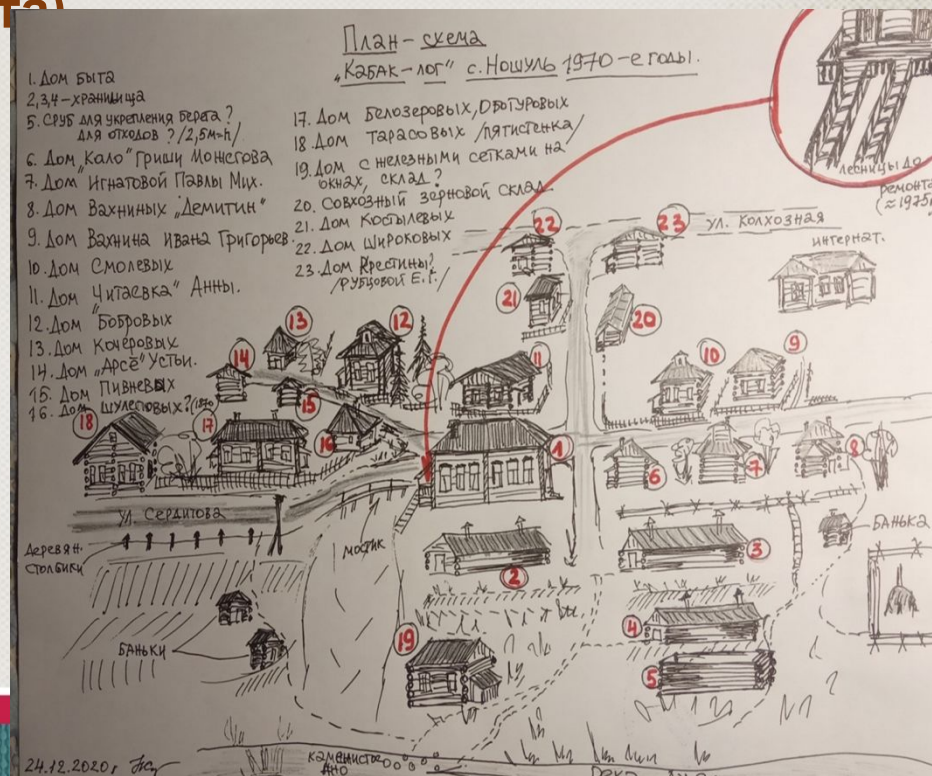 та)
План-схема
„Кабак-лог" с. Ношуль 1970-е годы.
1. Дом быта
2,3,4-хранилища
5. Сруб для укрепления берега?
для отходов? /2,5м=h/
6. Дом „Кало" Гриши Можегова
7. Дом "Игнатовой Павлы Мих.
8. Дом Вахниных „Демитин"
9. Дом Вахнина Ивана Григорьев.
10. Дом Смолевых
11. Дом „Читаевка" Анны.
12. Дом Бобровых
13. Дом Кочеровых
14. Дом „Арсё" Устьи.
15. Дом Пивневых
16. Дом Шулеповых?
17. Дом Белозеровых, Оботуровых
18. Дом Тарасовых /пятистенка/
19. Дом с железными сетками на
окнах, склад?
20. Совхозный зерновой склад
21. Дом Костылевых
22. Дом Широковых
23. Дом Крестины?
/Рубцовой Е.Г./
лесницы до
ремонта
(≈1975г
ул. Колхозная
интернат.
22
23
21
20
13
12
14
11
10
9
15
18
17
16
1
6
7
8
ул. Сердитова
Банька
Деревян.
столбики
мостик
2
3
4
19
5
Баньки
каменистое
дно
Река
24.12.2020г